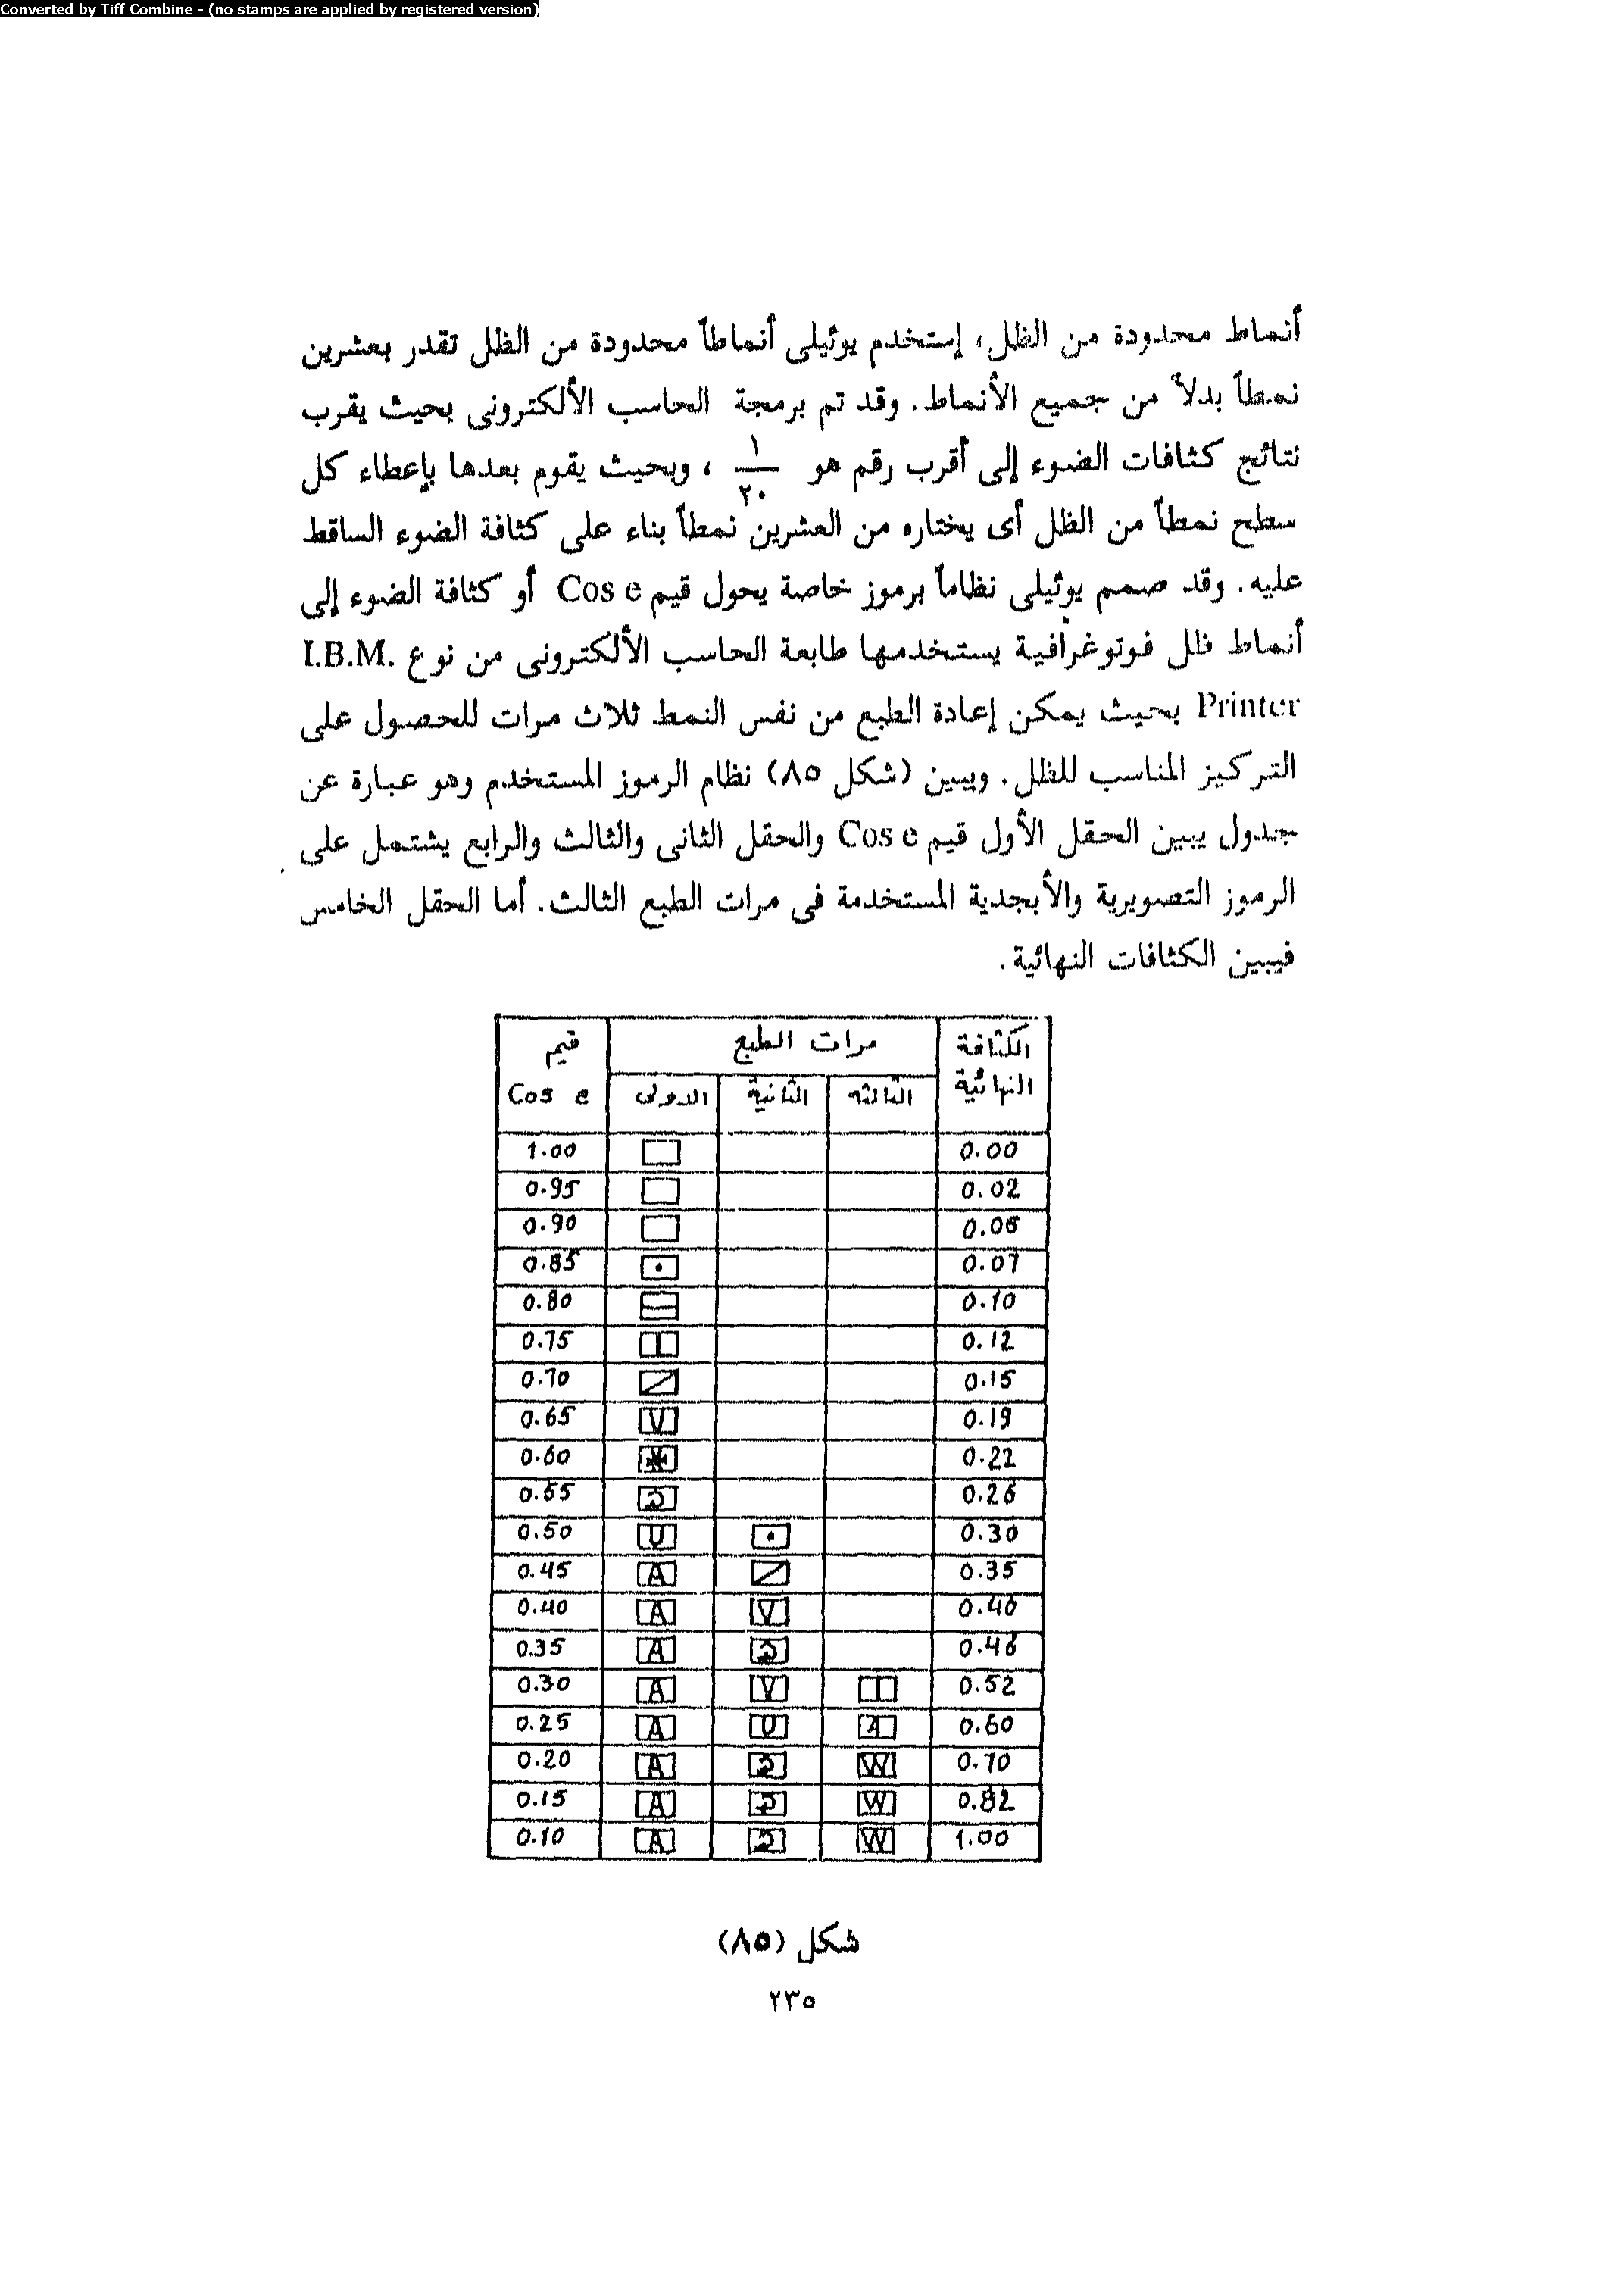 Converted by Tiff Combine - (no stamps are applied by registered version)
أنماط محدودة من الظل، إستخدم يوئيلى أنماطاً محدودة من الظل تقدر بعشرين
نمطاً بدلاً من جميع الأنماط. وقد تم برمجة الحاسب الألكترونى بحيث يقرب
نتائج كثافات الضوء إلى أقرب رقم هو ١/٢٠ ، وبحيث يقوم بعدها بإعطاء كل
سطح نمطاً من الظل أى يختاره من العشرين نمطاً بناء على كثافة الضوء الساقط
عليه. وقد صمم يوئيلى نظاماً برموز خاصة يحول قيم Cos e أو كثافة الضوء إلى
أنماط ظلل فوتوغرافية يستخدمها طابعة الحاسب الألكترونى من نوع I.B.M.
Printer بحيث يمكن إعادة الطبع من نفس النمط ثلاث مرات للحصول على
التركيز المناسب للظلل. ويبين (شكل ٨٥) نظام الرموز المستخدم وهو عبارة عن
جدول يبين الحقل الأول قيم Cos e والحقل الثانى والثالث والرابع يشتمل على
الرموز التصويرية والأبجدية المستخدمة فى مرات الطبع الثالث. أما الحقل الخامس
فيبين الكثافات النهائية.
قيم Cos e مرات الطبع الكثافة النهائية
الدولى الثانية الثالثه
1.00 0.00
0.95 0.02
0.90 0.06
0.85 0.07
0.80 0.10
0.75 0.12
0.70 0.15
0.65 V 0.19
0.60 0.22
0.55 0.26
0.50 U 0.30
0.45 A 0.35
0.40 A V 0.40
0.35 A 0.46
0.30 A V 0.52
0.25 A U A 0.60
0.20 A W 0.70
0.15 A W 0.82
0.10 A W 1.00
شكل (٨٥)
٢٣٥